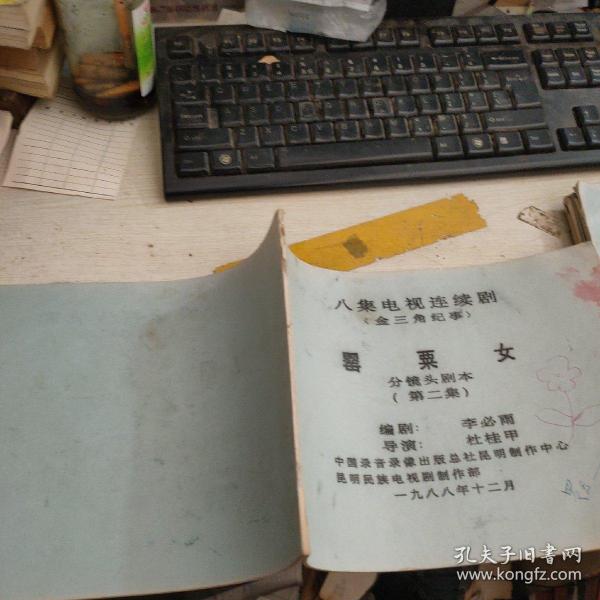 八集电视连续剧
(金三角纪事)
罂粟女
分镜头剧本
(第二集)
编剧: 李必雨
导演: 杜桂甲
中国录音录像出版总社昆明制作中心
昆明民族电视剧制作部
一九八八年十二月
孔夫子旧书网
www.kongfz.com